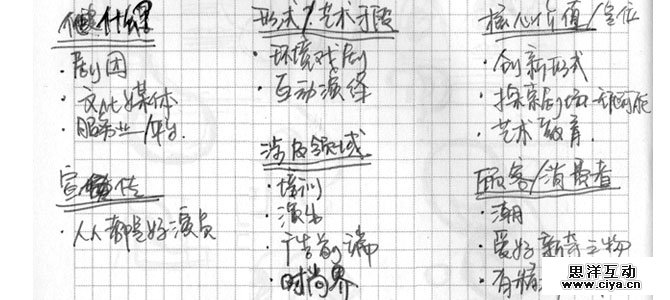 做什么
· 剧团
· 文化媒体
· 服务业/平台.
宣传
· 人人都是好演员
形式/艺术手段
· 环境戏剧
· 互动演绎
涉及领域
· 培训
· 演出
· 广告前端
· 时尚界
核心价值/定位
· 创新形式
· 探索剧场
· 艺术教育.
顾客/消费者
· 潮
· 爱好新奇之物
· 有
思洋互动
www.ciya.cn